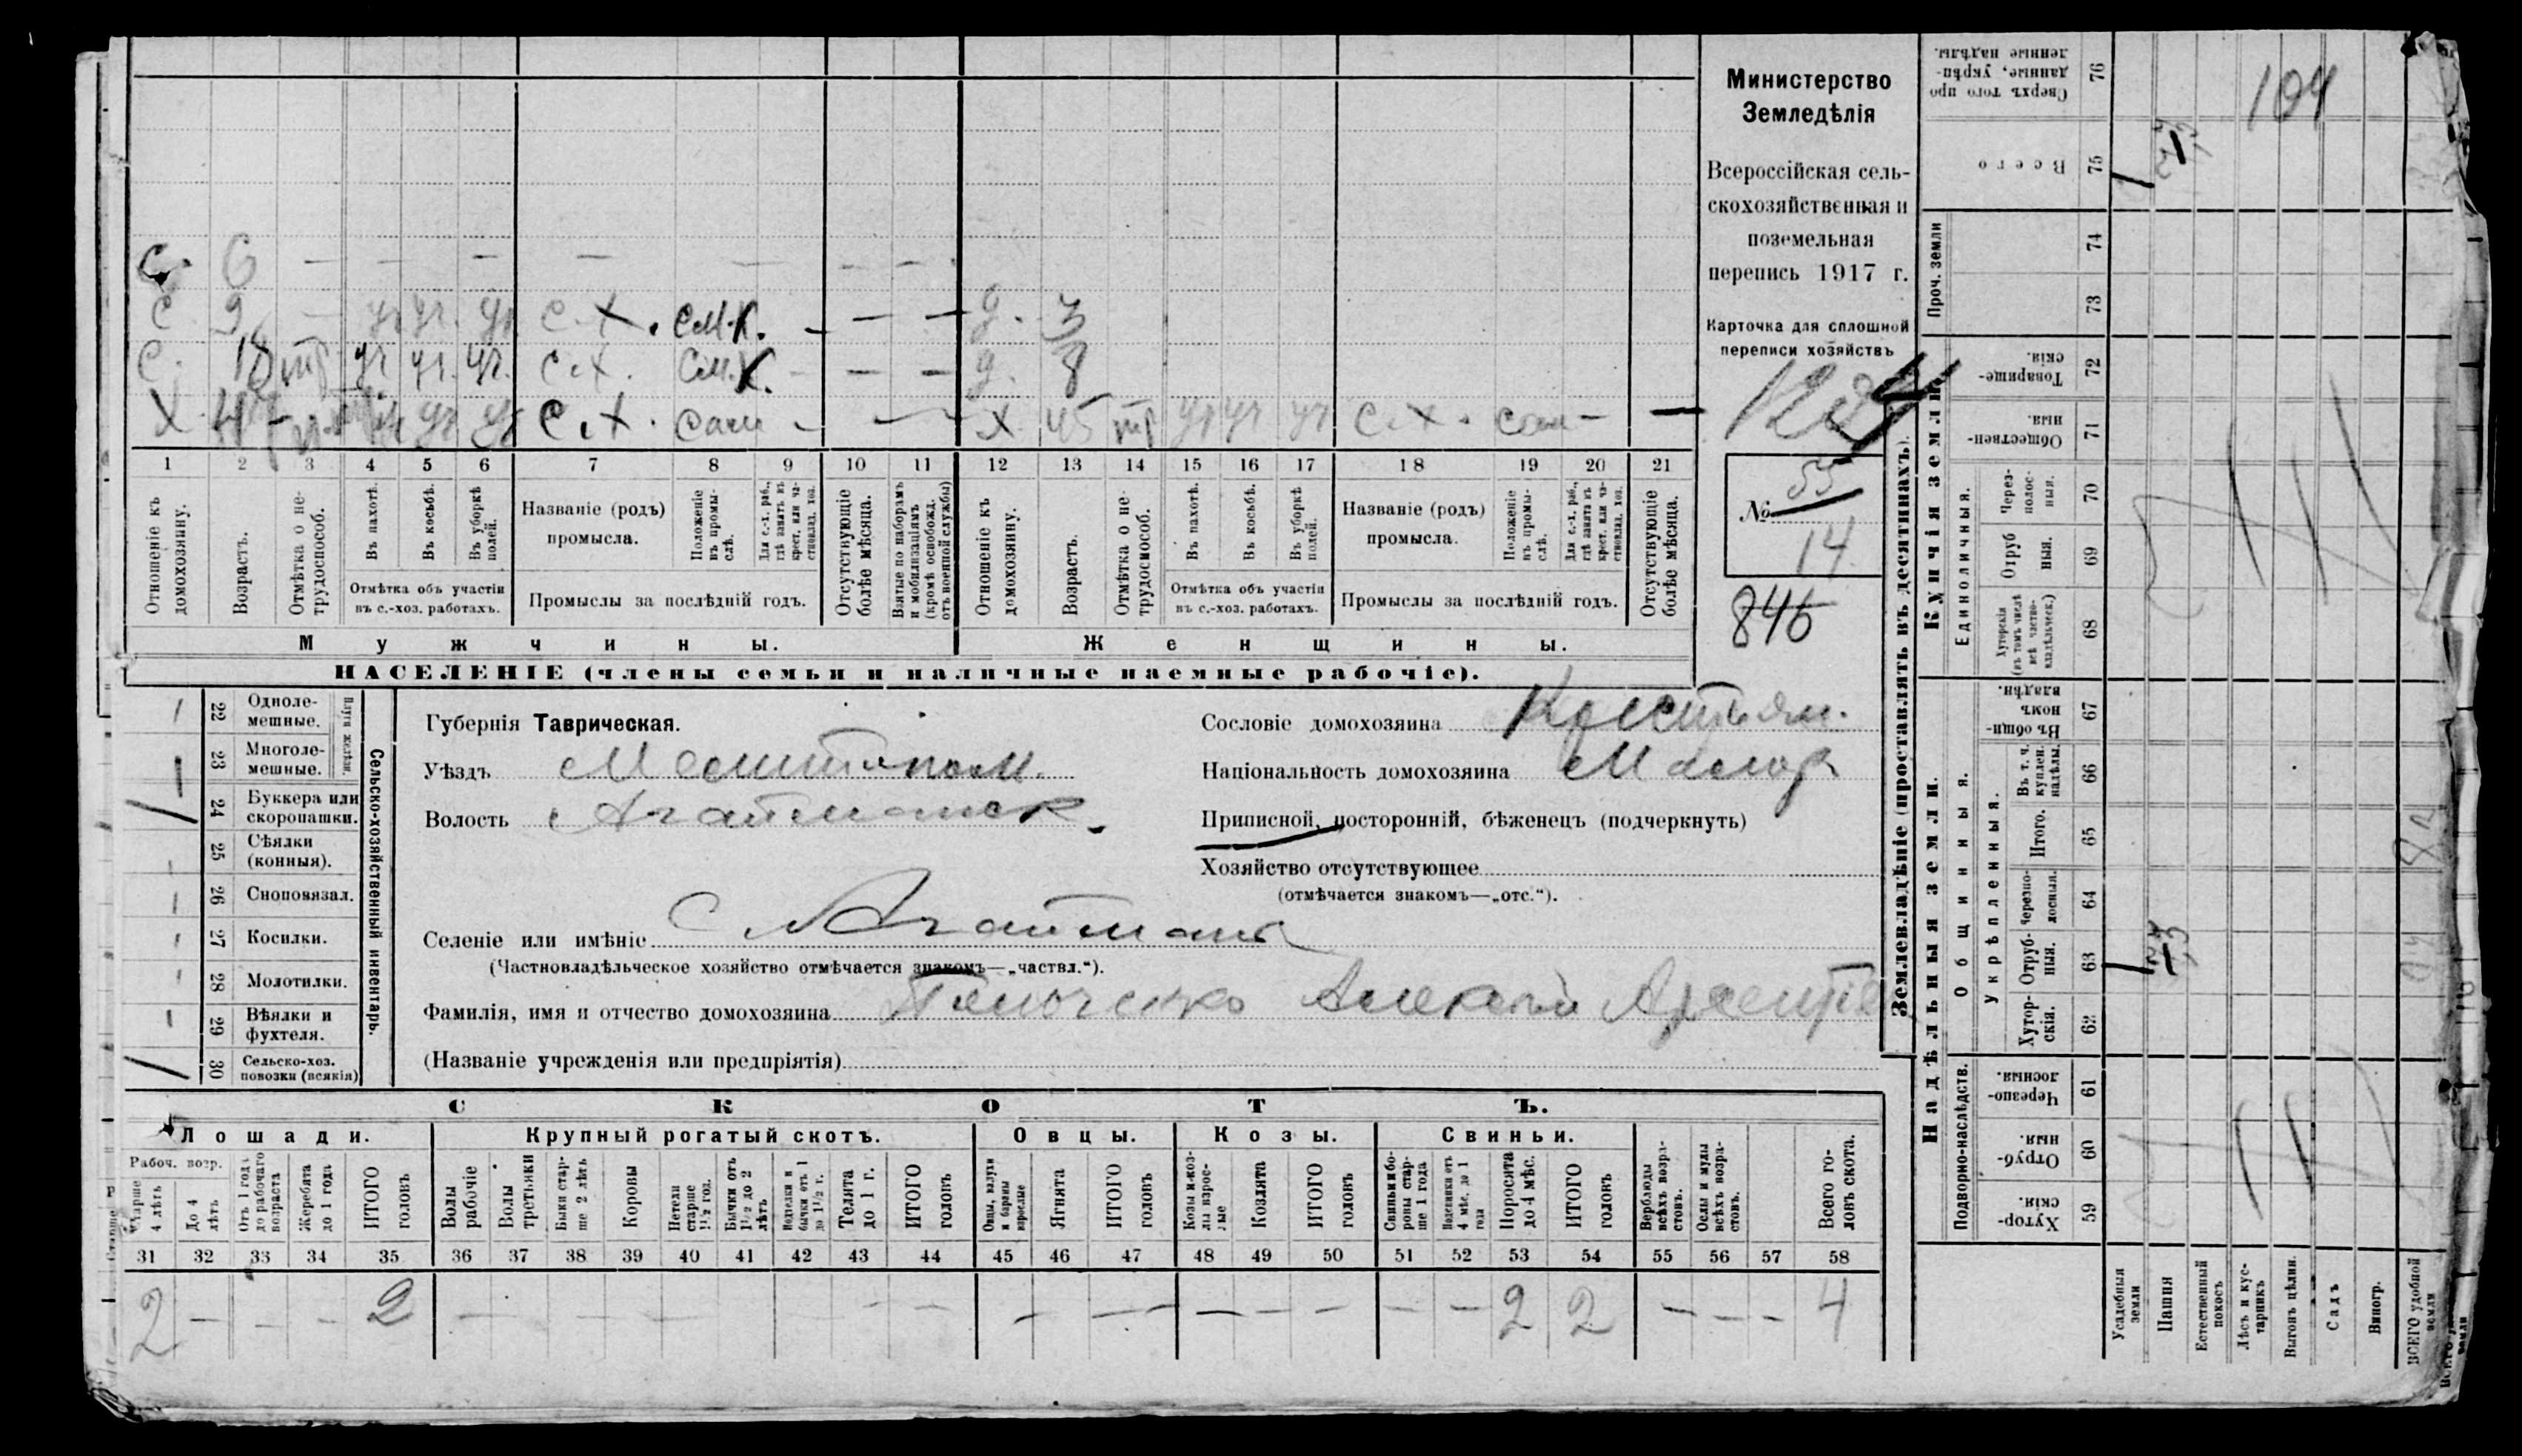 Министерство
Земледѣлія
Всероссійская сель-
скохозяйственная и
поземельная
перепись 1917 г.
Карточка для сплошной
переписи хозяйствъ
№ 55
14
846
С. 6 — — — — — — — — —
С 9 — уч уч. уч с.х. см.к. — — — д. 3
С. 18 тр уч уч. уч. с.х. см.к. — — — д. 8
Х. уч уч с.х. сам — — — Х 45 тр уч уч уч с.х. сам — —
1 2 3 4 5 6 7 8 9 10 11 12 13 14 15 16 17 18 19 20 21
Отношеніе къ домохозяину.
Возрастъ.
Отмѣтка о не-трудоспособ.
Въ пахотѣ.
Въ косьбѣ.
Въ уборкѣ полей.
Отмѣтка объ участіи въ с.-хоз. работахъ.
Названіе (родъ) промысла.
Положеніе въ промы-слѣ.
Для с.-х. раб., гдѣ занятъ въ крест. или ча-стновлад. хоз.
Промыслы за послѣдній годъ.
Отсутствующіе болѣе мѣсяца.
Взятые по наборамъ и мобилизаціямъ (кромѣ освобожд. отъ военной службы)
Отношеніе къ домохозяину.
Возрастъ.
Отмѣтка о не-трудоспособ.
Въ пахотѣ.
Въ косьбѣ.
Въ уборкѣ полей.
Отмѣтка объ участіи въ с.-хоз. работахъ.
Названіе (родъ) промысла.
Положеніе въ промы-слѣ.
Для с.-х. раб., гдѣ занята въ крест. или ча-стновлад. хоз.
Промыслы за послѣдній годъ.
Отсутствующіе болѣе мѣсяца.
Мужчины. Женщины.
НАСЕЛЕНІЕ (члены семьи и наличные наемные рабочіе).
Сельско-хозяйственный инвентарь.
Плуги желѣзн.
22 Одноле-мешные.
23 Многоле-мешные.
1 24 Буккера или скоропашки.
25 Сѣялки (конныя).
26 Сноповязал.
27 Косилки.
28 Молотилки.
29 Вѣялки и фухтеля.
1 30 Сельско-хоз. повозки (всякія)
Губернія Таврическая.
Уѣздъ Мелитопол.
Волость Агайманск.
Селеніе или имѣніе С Агайманъ
(Частновладѣльческое хозяйство отмѣчается знакомъ—„частвл.“).
Фамилія, имя и отчество домохозяина Алексѣй
(Названіе учрежденія или предпріятія)
Сословіе домохозяина Крестьян.
Національность домохозяина Малор
Приписной, посторонній, бѣженецъ (подчеркнуть)
Хозяйство отсутствующее
(отмѣчается знакомъ—„отс.“).
СКОТЪ.
Лошади. Крупный рогатый скотъ. Овцы. Козы. Свиньи.
Рабоч. возр.
Старше 4 лѣтъ
До 4 лѣтъ
Отъ 1 года до рабочаго возраста
Жеребята до 1 года
ИТОГО головъ
Волы рабочіе
Волы третьяки
Быки стар-ше 2 лѣтъ
Коровы
Нетели старше 1½ год.
Бычки отъ 1½ до 2 лѣтъ
Нетелки и бычки отъ 1 до 1½ г.
Телята до 1 г.
ИТОГО головъ
Овцы, валухи и бараны взрослые
Ягнята
ИТОГО головъ
Козы и коз-лы взрос-лые
Козлята
ИТОГО головъ
Свиньи и бо-ровы стар-ше 1 года
Подсвинки отъ 4 мѣс. до 1 года
Поросята до 4 мѣс.
ИТОГО головъ
Верблюды всѣхъ возра-стовъ.
Ослы и мулы всѣхъ возра-стовъ.
Всего го-ловъ скота.
31 32 33 34 35 36 37 38 39 40 41 42 43 44 45 46 47 48 49 50 51 52 53 54 55 56 57 58
2 — — — 2 — — — — — — — — — — — — — — — — — 2 2 — — — 4
Землевладѣніе (проставлять въ десятинахъ).
Надѣльныя земли. Купчія земли. Проч. земли
Подворно-наслѣдств.
Общинныя.
Укрѣпленныя.
Единоличныя.
59 Хутор-скія.
60 Отруб-ныя.
61 Черезпо-лосныя.
62 Хутор-скія.
63 Отруб-ныя.
64 Черезпо-лосныя.
65 Итого.
66 Въ т. ч. куплен. надѣлы.
67 Въ общи-номъ владѣн.
68 Хуторскія (въ томъ числѣ всѣ частно-владѣльческ.)
69 Отруб ныя.
70 Через-полос-ныя.
71 Обществен-ныя
72 Товарище-скія.
73
74
75 Всего
76 Сверхъ того про данные, укрѣп-ленные надѣлы.
104
Усадебныя земли
Пашня
Естественный покосъ
Лѣсъ и кус-тарникъ
Выгонъ цѣлин.
Садъ
Виногр.
ВСЕГО удобной земли